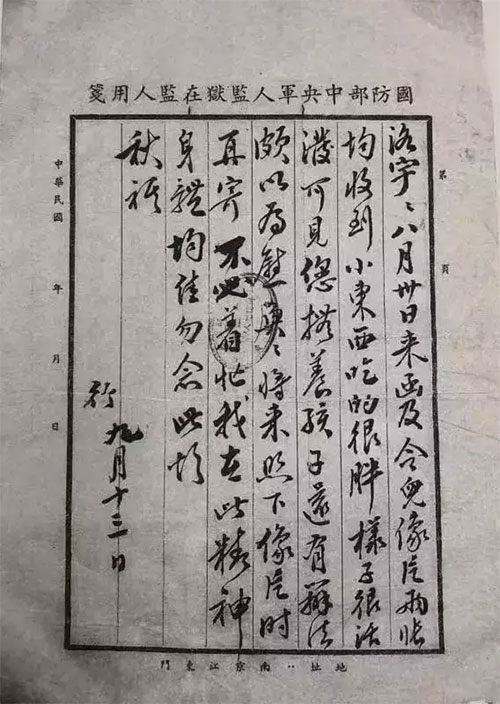 國防部中央軍人監獄在監人用箋
第 頁
洛宇:八月卅日来函及令兒像片兩張
均收到小東西吃的很胖樣子很活
潑可見您撘養孩子還有辦法
頗以為慰 將来照下像片時
再寄不必着忙我在此精神
身體均佳勿念此頌
秋祺
九月十三日
中華民國 年 月 日
地址:南京江東門